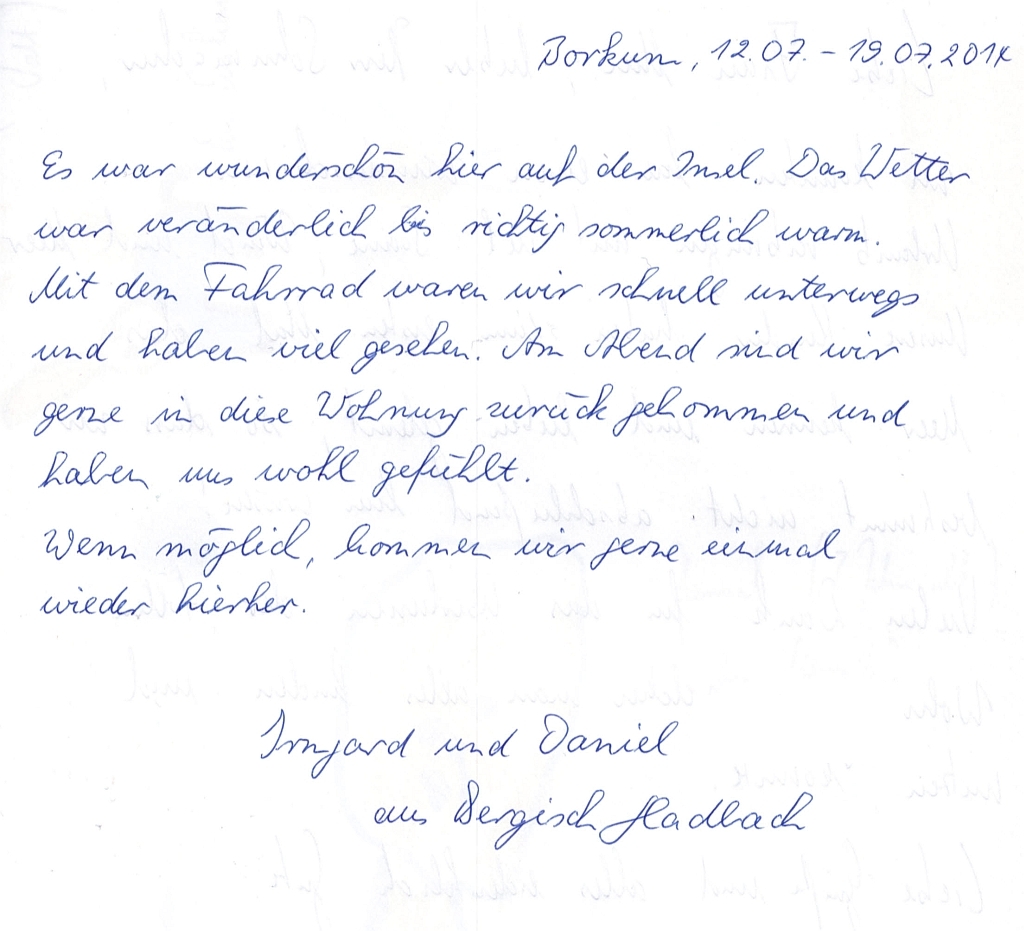 Borkum, 12.07. - 19.07.2014
Es war wunderschön hier auf der Insel. Das Wetter
war veränderlich bis richtig sommerlich warm.
Mit dem Fahrrad waren wir schnell unterwegs
und haben viel gesehen. Am Abend sind wir
gerne in diese Wohnung zurück gekommen und
haben uns wohl gefühlt.
Wenn möglich, kommen wir gerne einmal
wieder hierher.
Irmgard und Daniel
aus Bergisch Gladbach